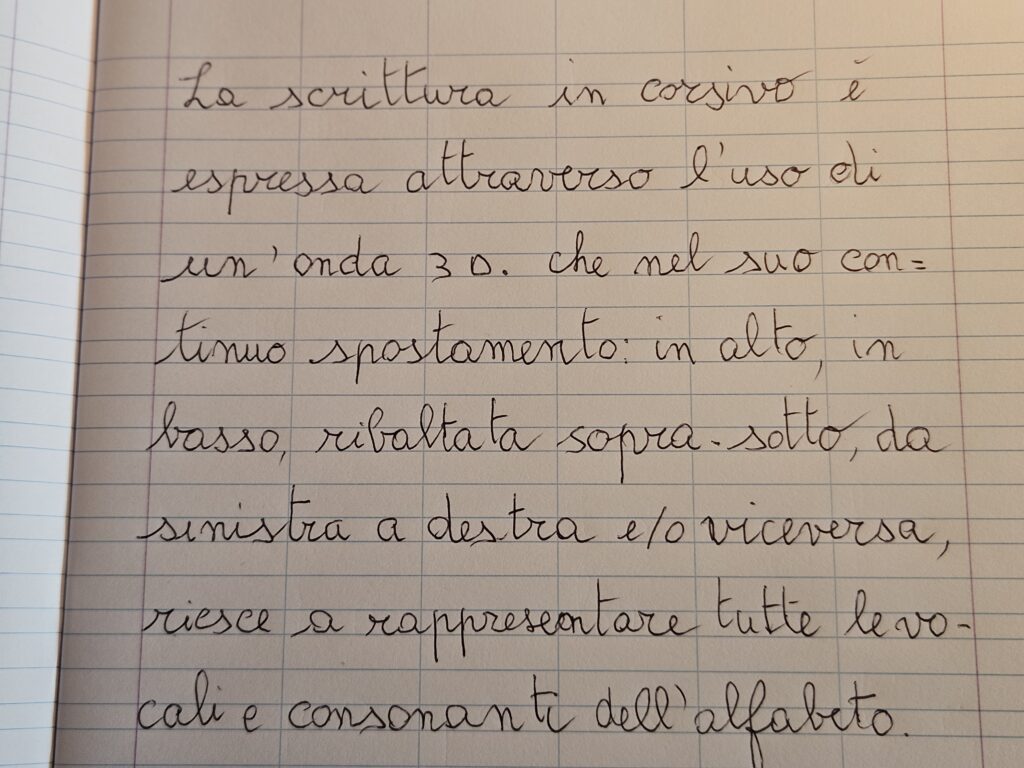 La scrittura in corsivo è
espressa attraverso l'uso di
un'onda 3D. che nel suo con=
tinuo spostamento: in alto, in
basso, ribaltata sopra-sotto, da
sinistra a destra e/o viceversa,
riesce a rappresentare tutte le vo-
cali e consonanti dell'alfabeto.